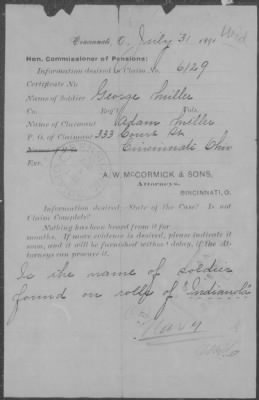 Cincinnati, O., July 31 1891
Hon. Commissioner of Pensions:
Information desired in Claim No. 6129
Certificate No.
Name of Soldier George Miller
Co. Reg't Vols.
Name of Claimant Adam Miller
P. O. of Claimant 333 Court St
Cincinnati Ohio
Ex'r
A. W. McCORMICK & SONS,
Attorneys,
CINCINNATI, O.
Information desired, State of the Case? Is not
Claim Complete?
Nothing has been heard from it for
months. If more evidence is desired, please indicate it
soon, and it will be furnished without delay, if the At-
torneys can procure it.
Is the name of soldier
found on rolls of "Indianola"
Navy